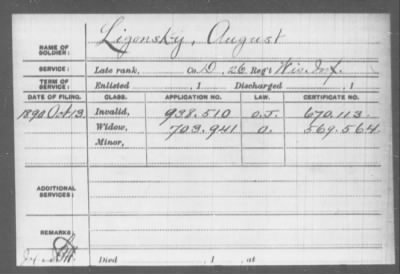 NAME OF SOLDIER: Ligonsky, August
SERVICE: Late rank, Co. D, 26 Reg't Wis. Inf.
TERM OF SERVICE: Enlisted , 1 Discharged , 1
DATE OF FILING. CLASS. APPLICATION NO. LAW. CERTIFICATE NO.
1890 Oct 13 Invalid, 938.510 O.J. 670.113.
Widow, 703.941 O. 569.564
Minor,
ADDITIONAL SERVICES:
REMARKS:
Died , 1 , at